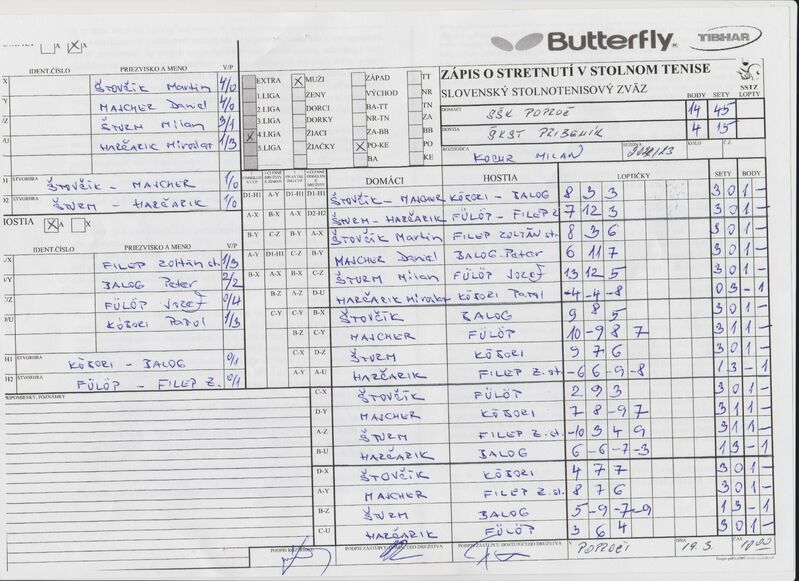 Butterfly TIBHAR
ZÁPIS O STRETNUTÍ V STOLNOM TENISE
SLOVENSKÝ STOLNOTENISOVÝ ZVÄZ
SSTZ
BODY SETY LOPTY
DOMÁCI ŠŠK POPROČ 14 45
HOSTIA ŠKST PRIBENÍK 4 15
ROZHODCA KOCUR MILAN SEZÓNA KOLO Č.Z.
EXTRA X MUŽI ZÁPAD TT
1.LIGA ŽENY VÝCHOD NR
2.LIGA DORCI BA-TT TN
3.LIGA DORKY NR-TN ZA
X 4.LIGA ŽIACI ZA-BB BB
5.LIGA ŽIAČKY X PO-KE PO
BA KE
A X X
IDENT.ČÍSLO PRIEZVISKO A MENO V/P
ŠTOVČÍK Martin 4/0
MAJCHER Daniel 4/0
ŠTURM Milan 3/1
HARČARIK Miroslav 1/3
ŠTVORHRA ŠTOVČÍK - MAJCHER 1/0
D2 ŠTVORHRA ŠTURM - HARČARIK 1/0
HOSTIA X A X
IDENT.ČÍSLO PRIEZVISKO A MENO V/P
FILEP Zoltán st. 1/3
BALOG Peter 2/2
FÜLÖP Jozef 0/4
KÖBORI Pavol 1/3
H1 ŠTVORHRA KÖBORI - BALOG 0/1
H2 ŠTVORHRA FÜLÖP - FILEP Z. 0/1
PRIPOMIENKY, POZNÁMKY
DOMÁCI HOSTIA LOPTIČKY SETY BODY
D1-H1 A-Y A-X D1-H1 ŠTOVČÍK - MAJCHER KÖBORI - BALOG 8 3 3 3 0 1 -
A-X B-X B-Y D2-H2 ŠTURM - HARČARIK FÜLÖP - FILEP Z 7 12 3 3 0 1 -
B-Y C-Z C-Z A-X ŠTOVČÍK Martin FILEP ZOLTÁN st. 8 3 6 3 0 1 -
A-Y D1-H1 C-Z B-Y MAJCHER Daniel BALOG Peter 6 11 7 3 0 1 -
B-X A-X B-X C-Z ŠTURM Milan FÜLÖP Jozef 13 12 5 3 0 1 -
B-Z A-Z D-U HARČARIK Miroslav KÖBORI Pavol -4 -4 -8 0 3 - 1
C-Y C-Y B-X ŠTOVČÍK BALOG 9 8 5 3 0 1 -
B-Z C-Y MAJCHER FÜLÖP 10 -9 8 7 3 1 1 -
C-X D-Z ŠTURM KÖBORI 9 7 6 3 0 1 -
A-Y A-U HARČARIK FILEP Z. st. -6 6 -9 -8 1 3 - 1
C-X ŠTOVČÍK FÜLÖP 2 9 3 3 0 1 -
D-Y MAJCHER KÖBORI 7 8 -9 7 3 1 1 -
A-Z ŠTURM FILEP Z. st. -10 3 4 9 3 1 1 -
B-U HARČARIK BALOG 6 -6 -7 -3 1 3 - 1
D-X ŠTOVČÍK KÖBORI 4 7 7 3 0 1 -
A-Y MAJCHER FILEP Z. st. 8 7 6 3 0 1 -
B-Z ŠTURM BALOG 5 -9 -7 -9 1 3 - 1
C-U HARČARIK FÜLÖP 3 6 4 3 0 1 -
PODPIS ROZHODCU PODPIS ZÁSTUPCU DOMÁCEHO DRUŽSTVA PODPIS ZÁSTUPCU HOSTUJÚCEHO DRUŽSTVA V POPROČI DŇA 19.3. ČAS